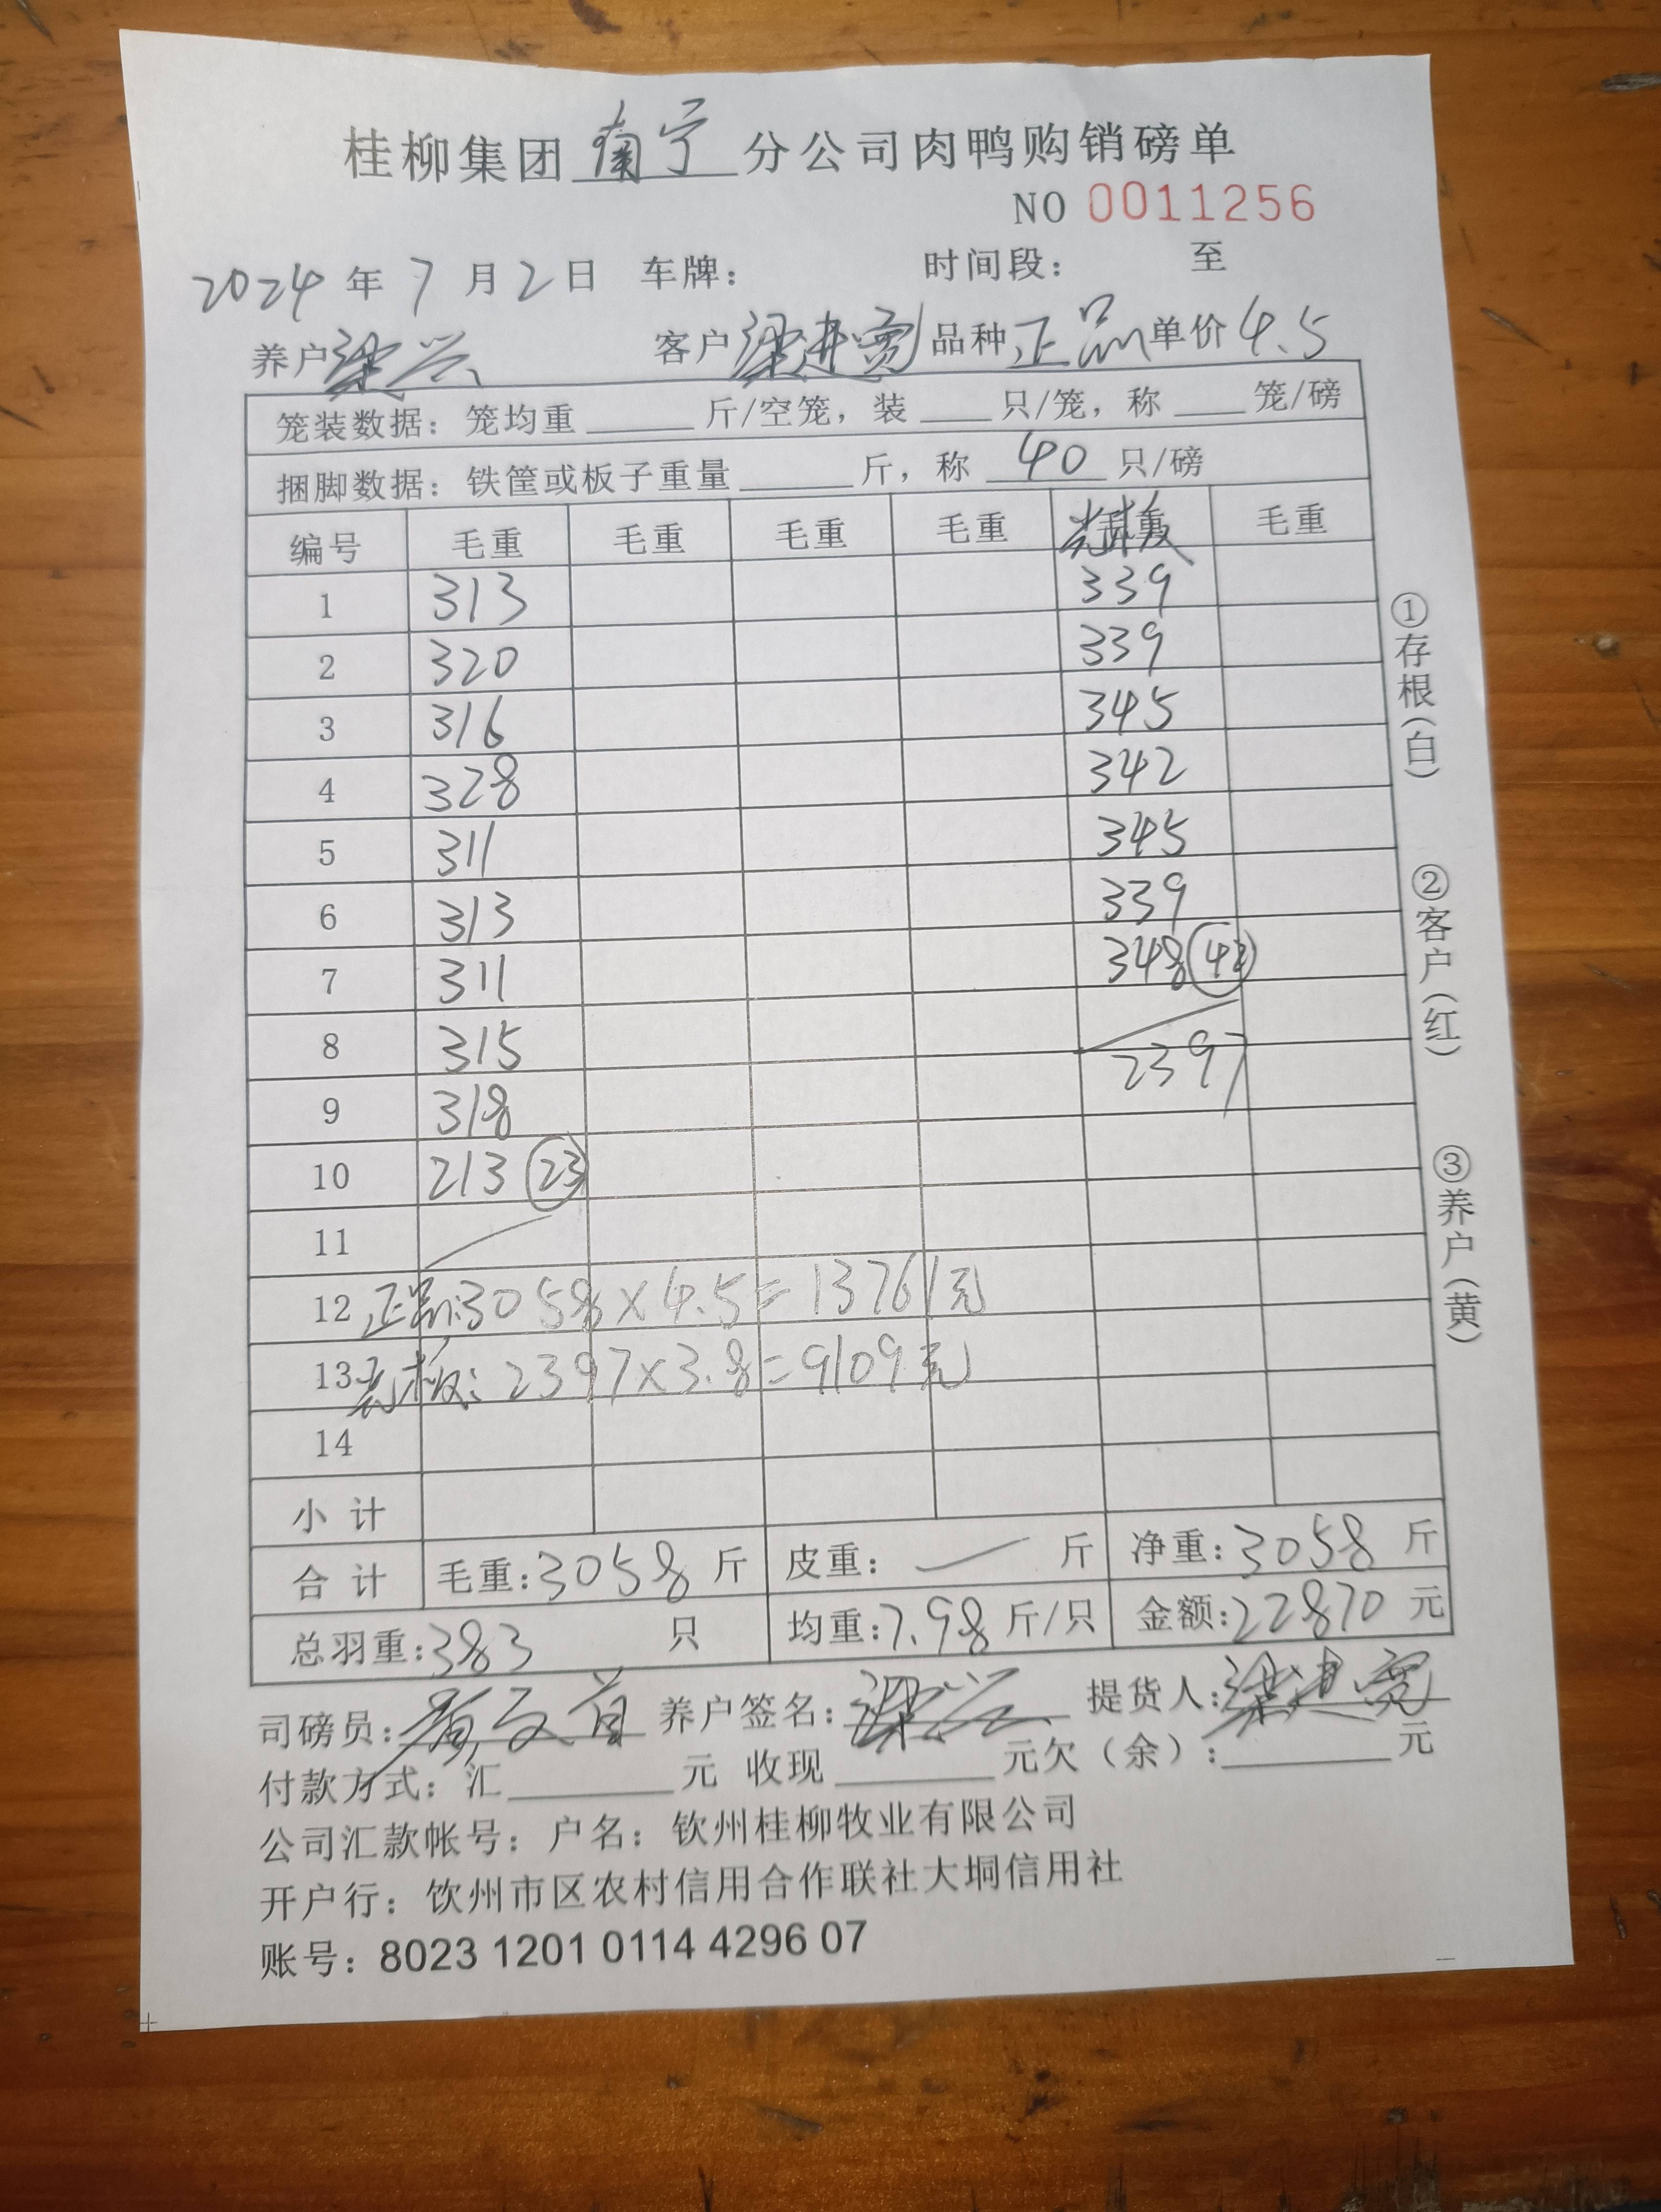 桂柳集团 南宁 分公司肉鸭购销磅单
NO 0011256
2024 年 7 月 2 日 车牌： 时间段： 至
养户 梁兴 客户 梁进宽 品种 正品 单价 4.5
笼装数据：笼均重______斤/空笼，装____只/笼，称____笼/磅
捆脚数据：铁筐或板子重量______斤，称 40 只/磅
编号 毛重 毛重 毛重 毛重 毛重
1 313 339
2 320 339
3 316 345
4 328 342
5 311 345
6 313 339
7 311 348
8 315 2397
9 318
10 213 23
11
12 正品:3058×4.5=13761元
13 光板:2397×3.8=9109元
14
小计
合计 毛重:3058 斤 皮重: — 斤 净重:3058 斤
总羽重:383 只 均重:7.98 斤/只 金额:22870 元
司磅员: 养户签名:梁兴 提货人:梁进宽
付款方式：汇______元 收现______元欠（余）:______元
公司汇款帐号：户名：钦州桂柳牧业有限公司
开户行：钦州市区农村信用合作联社大垌信用社
账号：8023 1201 0114 4296 07
①存根(白)
②客户(红)
③养户(黄)